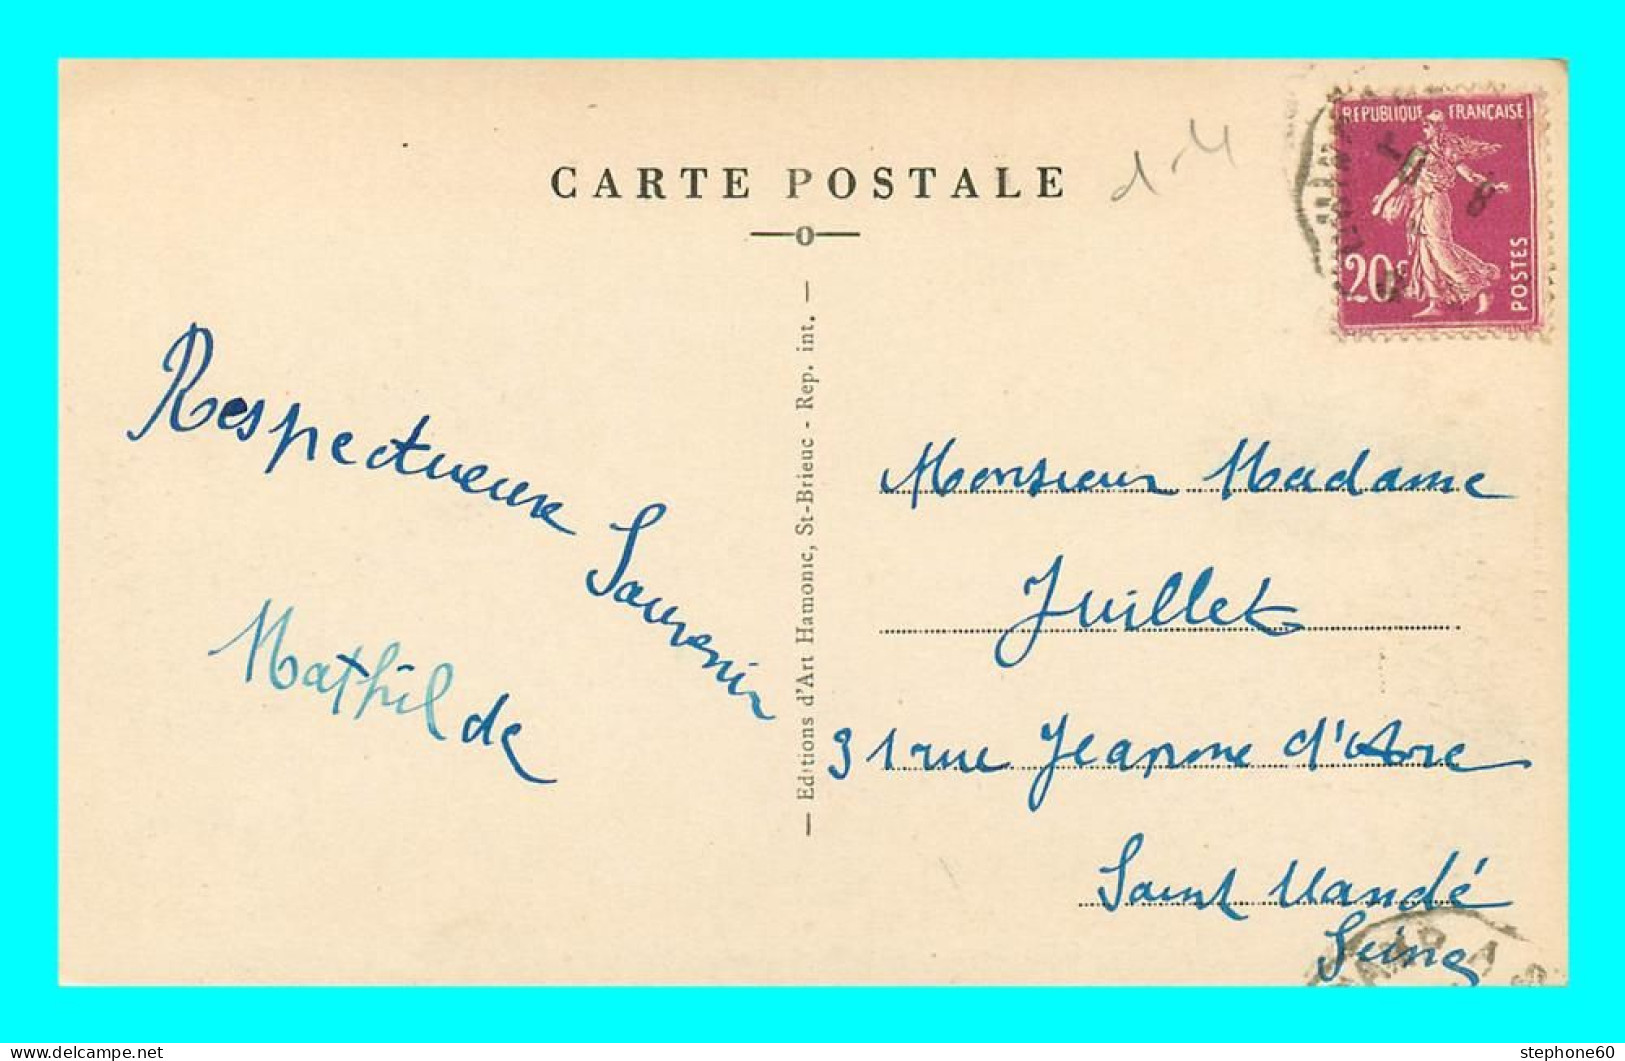 CARTE POSTALE
REPUBLIQUE FRANÇAISE
20c
POSTES
Respectueux
Souvenir
Mathilde
— Editions d'Art Hamonic, St-Brieuc - Rep. int. —
Monsieur Madame
Juillet
31 rue Jeanne d'Arc
Saint Mandé
Seine
stephone60